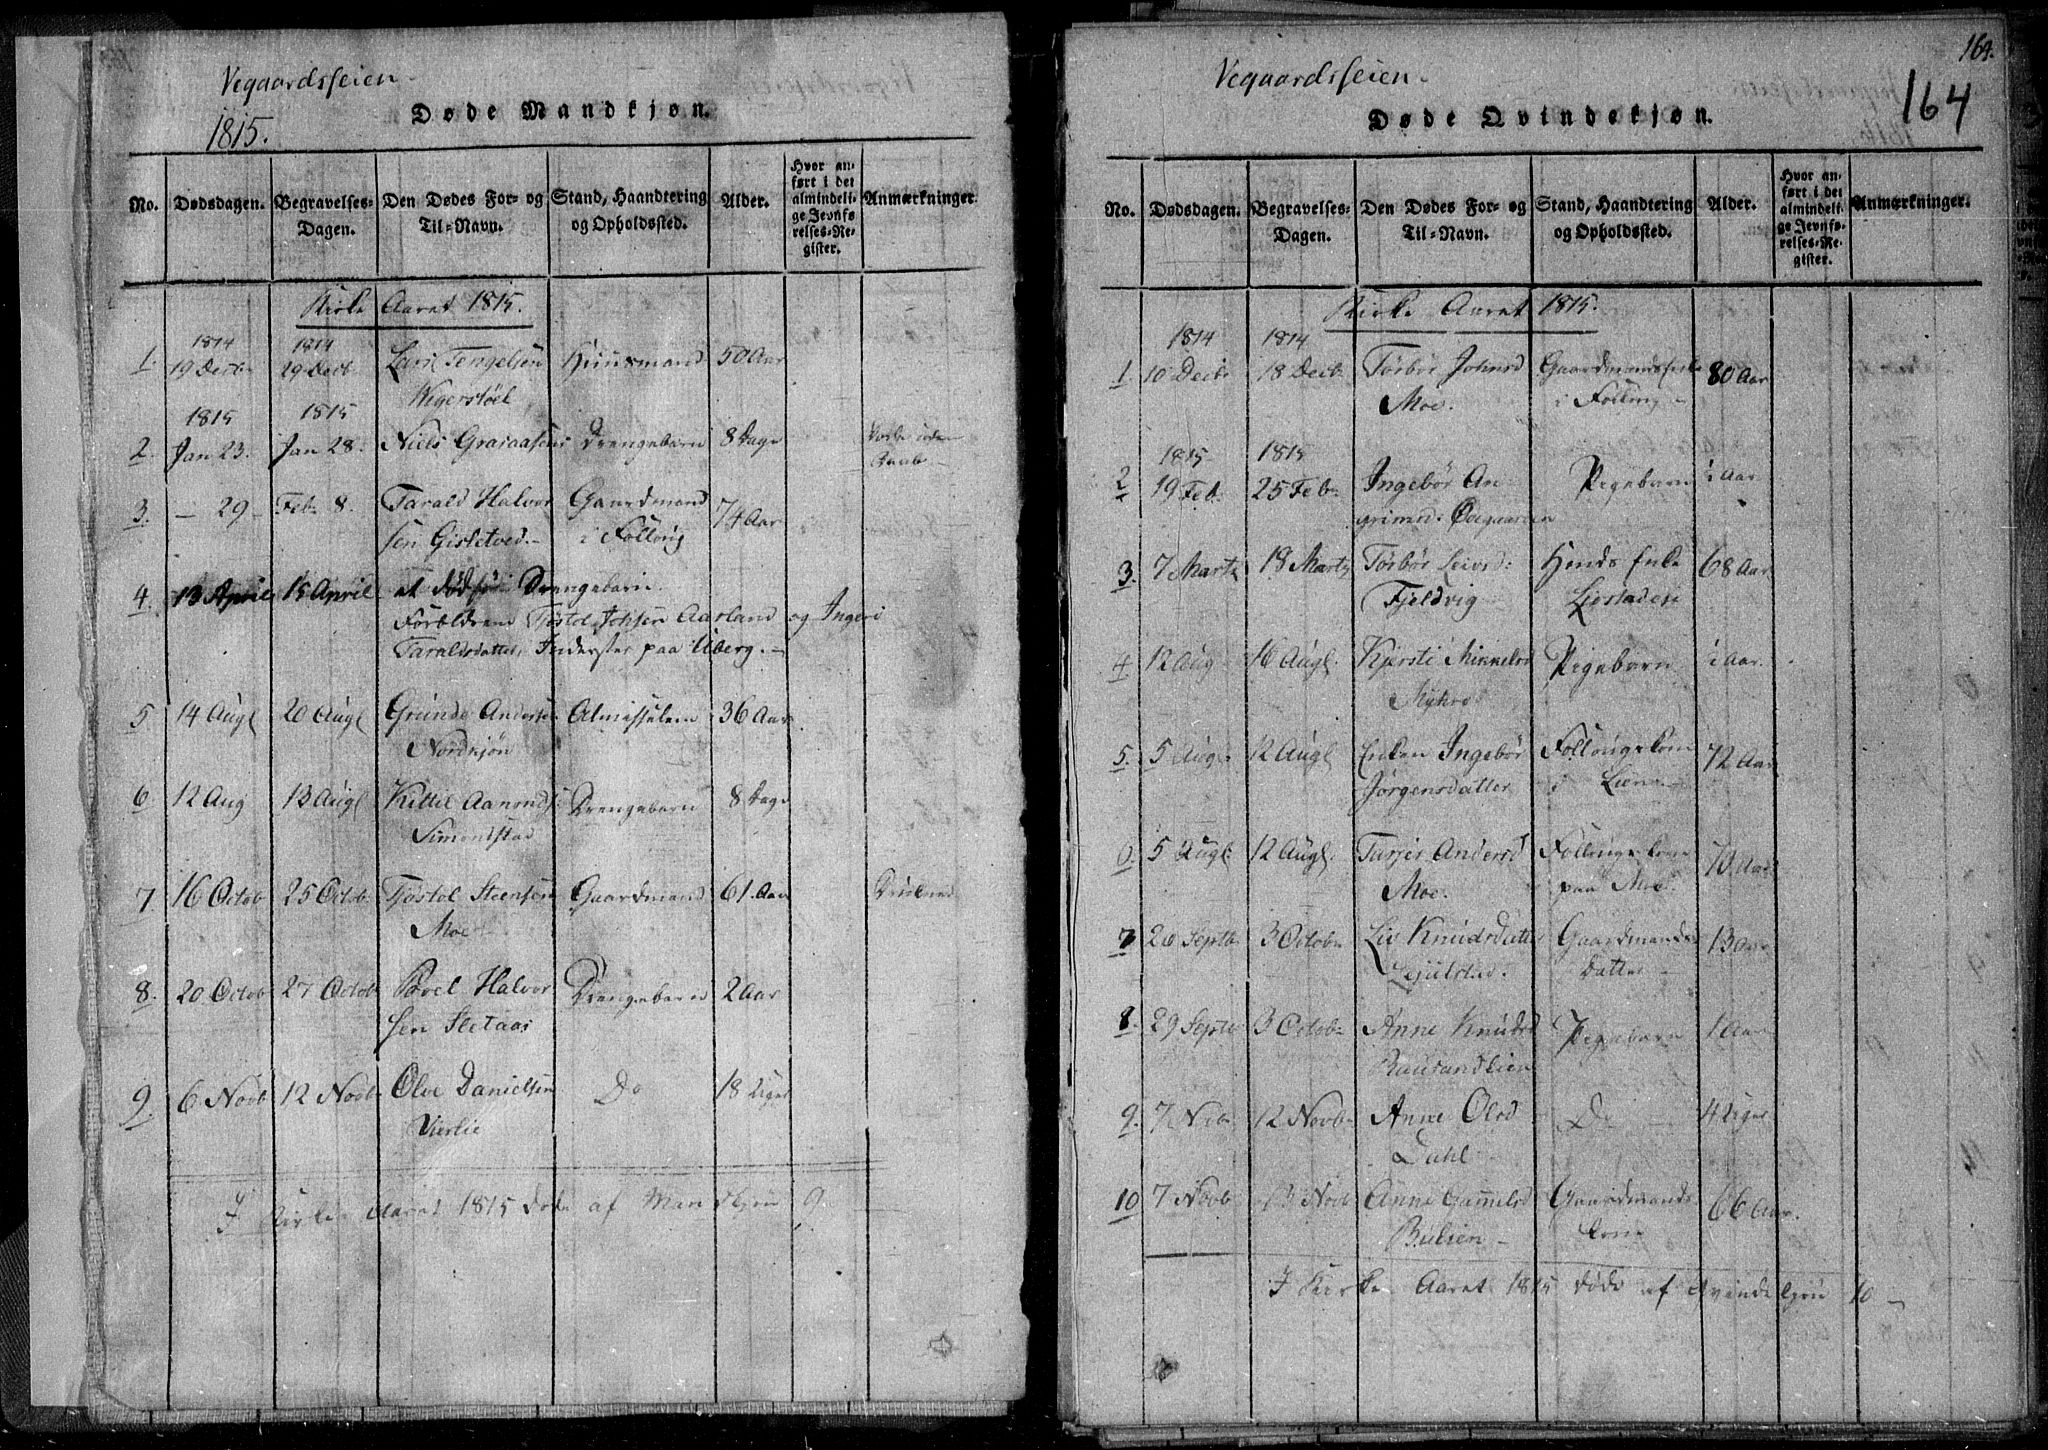 Vegaardsseien
1815.
Døde Mandkjøn.
No. Dødsdagen. Begravelses-Dagen. Den Dødes For- og Til-Navn. Stand, Haandtering og Opholdssted. Alder. Hvor anført i det almindelige Jevnførelses-Register. Anmærkninger
Kirke Aaret 1815.
1814 1814
1. 19 Decbr 29 Decb Lars Tengelsen Huusmand 50 Aar
1815 1815
2. Jan 23. Jan 28. Niels Drengebarn 8 Dage
3. – 29 – Feb. 8. Tarald Halvor Gaardmand 74 Aar
sen Gisletved. i Folløug
4. 13 April 15 April et Dødfø Drengebarn.
Forældrene Tostol Johsen Aarland og Ingeri
Taraldsdatter, Inderster paa Uberg. –
5 14 Augl 20 Augl Grunde Andersen Almisselem 36 Aar
Nordkjøn
6 12 Aug 13 Augl Kittil Aanonds Drengebarn 8 Dage
Simondstad
7. 16 Octob 25 Octob Tjøstol Steensen Gaardmand 61. Aar
Moe
8. 20 Octob 27 Octob Povel Halvor Drengebarn 2 Aar
sen Sletaas
9. 6 Novb 12 Novb Olve Danielsen Do 18 Uger
Vierlie
I Kirke Aaret 1815 Døde af Mandkjøn 9.
164.
164
Vegaardsseien
Døde Qvindekjøn.
No. Dødsdagen. Begravelses-Dagen. Den Dødes For- og Til-Navn. Stand, Haandtering og Opholdssted. Alder. Hvor anført i det almindelige Jevnførelses-Register. Anmærkninger.
Kirke Aaret 1815.
1814 1814
1. 10 Decbr 18 Decb Torbør Johnsd Gaardmandsenke 80 Aar
Moe. i Folløug
1815 1815
2 19 Feb. 25 Feb. Ingebør An- Pigebarn 2 Aar
grimsd:
3. 7 Marts 18 Marts Torbør Leivsd: enke 68 Aar
Fjeldvig
4 12 Aug 16 Augl. Kjersti Mikkelsd Pigebarn 2 Aar.
5. 5 Aug. 12 Augl Enken Ingebør Follougskone 72 Aar
Jørgensdatter i Liene
6. 5 Augl 12 Augl. Turjer Andersd Follougskone 73 Aar
Moe. paa Moe.
7 26 Septb 3 Octobr Liv Knudsdatter Gaardmands 13 Aar
Lejulstad. Datter
8. 29 Septb 3 Octobr Anne Knudsd Pigebarn 1 Aar
Rausandlien
9. 7 Nvb. 12 Novb Anne Olsd Do 4 Uger
Dahl
10 7 Novb 13 Novb Anne Gunnelsd Gaardmands 66 Aar.
Bulien – kone
I Kirke Aaret 1815 Døde af Qvindekjøn 10 –